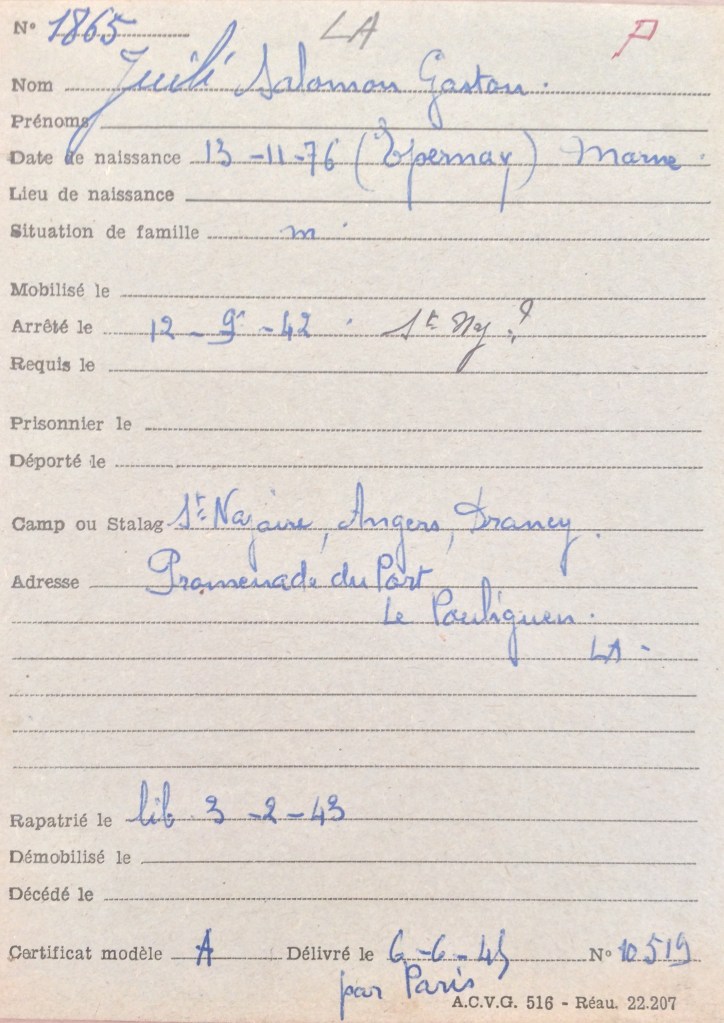 N° 1865 LA P
Nom Salomon Gaston.
Prénoms
Date de naissance 13-11-76 (Epernay) Marne.
Lieu de naissance
Situation de famille m.
Mobilisé le
Arrêté le 12-9-42. St Naz ?
Requis le
Prisonnier le
Déporté le
Camp ou Stalag St Nazaire, Angers, Drancy.
Adresse Promenade du Port
Le Pouliguen.
LA-
Rapatrié le lib 3-2-43
Démobilisé le
Décédé le
Certificat modèle A Délivré le 6-6-45 N° 10519
par Paris
A.C.V.G. 516 - Réau. 22.207